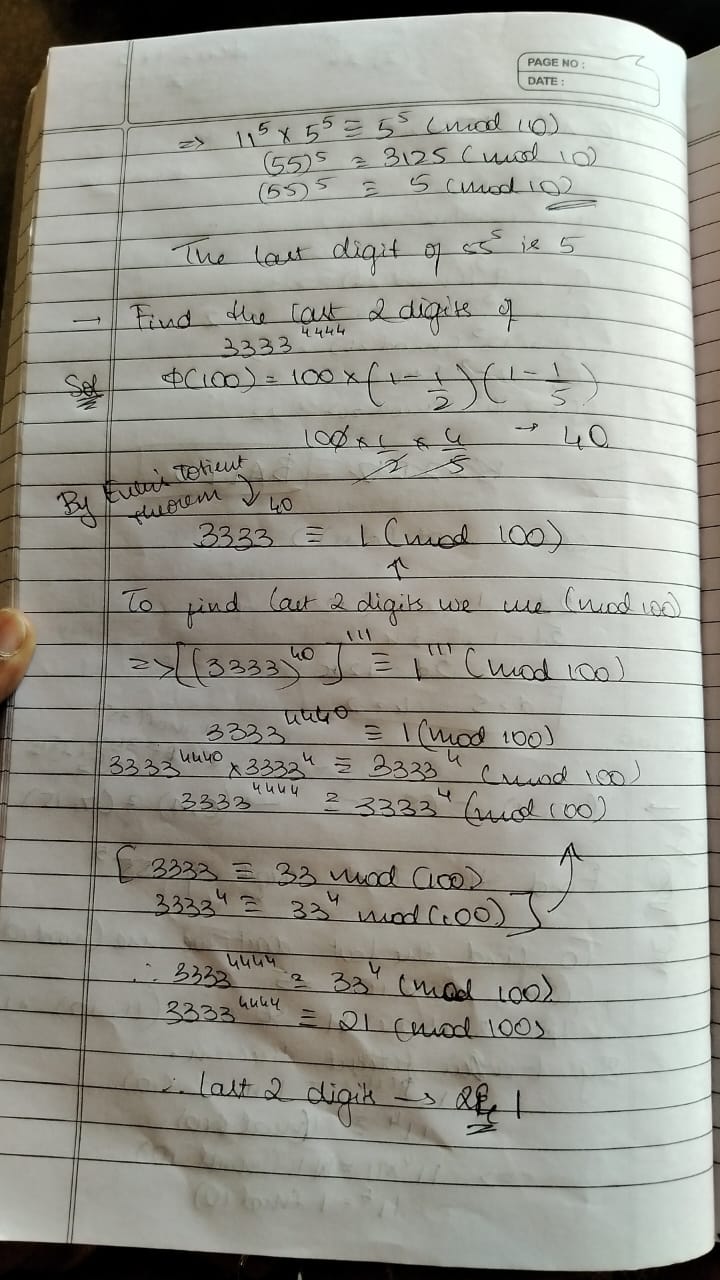 PAGE NO :
DATE :
=> 11^5 x 5^5 ≡ 5^5 (mod 10)
(55)^5 ≡ 3125 (mod 10)
(55)^5 ≡ 5 (mod 10)
The last digit of 55^5 is 5
→ Find the last 2 digits of
3333^4444
Sol φ(100) = 100 x (1 - 1/2) (1 - 1/5)
100 x 1/2 x 4/5 → 40
By Euler's Totient
theorem ↓
3333^40 ≡ 1 (mod 100)
↑
To find last 2 digits we use (mod 100)
=> [(3333)^40]^111 ≡ 1^111 (mod 100)
3333^4440 ≡ 1 (mod 100)
3333^4440 x 3333^4 ≡ 3333^4 (mod 100)
3333^4444 ≡ 3333^4 (mod 100)
[ 3333 ≡ 33 mod (100)
3333^4 ≡ 33^4 mod (100) ]
∴ 3333^4444 ≡ 33^4 (mod 100)
3333^4444 ≡ 21 (mod 100)
∴ last 2 digits → 2 1